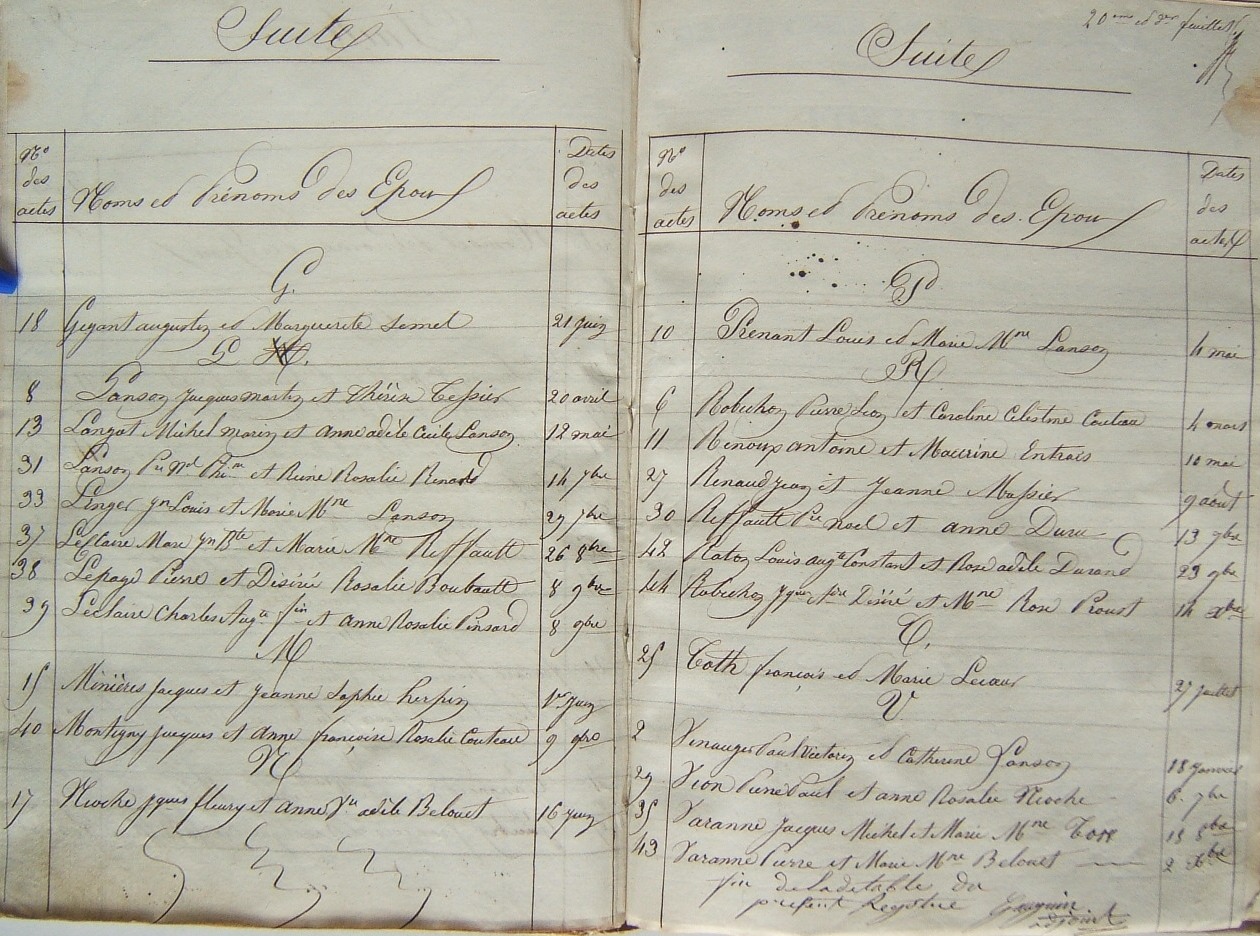 Suite
Nos des actes
Noms et Prénoms des Epoux
Dates des actes
G.
18 Gegant augustin et Marguerite Semel 21 juin
L
8 Lanson Jacques martin et Thérèse Tessier 20 avril
13 Langot Michel marin et anne adèle Cécile Lanson 12 mai
31 Lanson Pre Nel et Reine Rosalie Renard 14 7bre
33 Linger Jn Louis et Marie Mne Lanson 27 7bre
37 Leclaire Marc Jn Bte et Marie Mne Reffault 26 8bre
38 Lepage Pierre et Désiré Rosalie Boubault 8 9bre
39 Leclaire Charles Augte et anne Rosalie Pinsard 8 9bre
M
15 Minières Jacques et Jeanne Sophie herpin 1er Juin
40 Montigny Jacques et Anne françoise Rosalie Couteau 9 9bre
N
17 Nioche Jques fleury et anne Vre adèle Belouet 16 Juin
20eme et der feuillet
Suite
No des actes
Noms et Prénoms des Epoux
Dates des actes
P
10 Prenant Louis et Marie Mne Lanson 4 mai
R
6 Robichon Pierre Léon et Caroline Celestine Couteau 4 mars
11 Renoux antoine et Maurine Entrais 10 mai
27 Renaud Jean et Jeanne Massier 9 août
30 Reffault Pre noel et anne Duru 13 7bre
42 Raton Louis augte Constant et Rose adèle Durand 23 9bre
44 Robichon Jques Désiré et Mne Rose Proust 14 Xbre
T.
25 Toth françois et Marie Lecour 27 Juillet
V
2 Venauger Paul Victorin et Catherine Lanson 18 Janvier
29 Vion Pierre Paul et anne Rosalie Nioche 6 7bre
35 Varanne Jacques Michel et Marie Mne 18 8bre
43 Varanne Pierre et Marie Mne Belouet 2 Xbre
fin de la de table du
présent Registre
adjoint